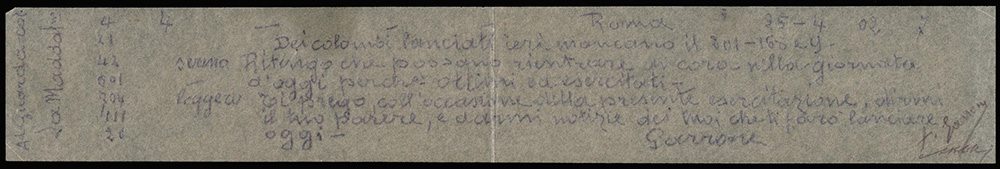 Al Guardacol
La Maddalna
4
21
42
801
304
111
26
4 Roma 25-4 02
Dei colombi lanciati ieri mancano il 801-168 e 4.
Ritengo che possano rientrare in corso nella giornata
d'oggi perche ottimi ed esercitati -
leggere Ti prego, coll'occasione della presente esercitazione, dirmi
il tuo parere, e darmi notizie dei tuoi che ti farò lanciare
oggi - Garrone